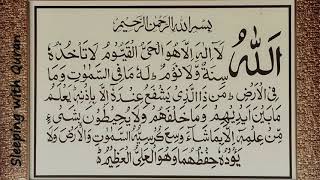 بِسْمِ اللهِ الرَّحْمٰنِ الرَّحِيْمِ
اَللهُ لَاۤ اِلٰهَ اِلَّا هُوَ الْحَيُّ الْقَيُّوْمُ لَا تَاْخُذُهٗ
سِنَةٌ وَّلَا نَوْمٌ لَهٗ مَا فِي السَّمٰوٰتِ وَمَا
فِي الْاَرْضِ مَنْ ذَا الَّذِيْ يَشْفَعُ عِنْدَهٗۤ اِلَّا بِاِذْنِهٖ يَعْلَمُ
مَا بَيْنَ اَيْدِيْهِمْ وَمَا خَلْفَهُمْ وَلَا يُحِيْطُوْنَ بِشَيْءٍ
مِّنْ عِلْمِهٖۤ اِلَّا بِمَا شَآءَ وَسِعَ كُرْسِيُّهُ السَّمٰوٰتِ وَالْاَرْضَ وَلَا
يَئُوْدُهٗ حِفْظُهُمَا وَهُوَ الْعَلِيُّ الْعَظِيْمُ
Sleeping with Quran